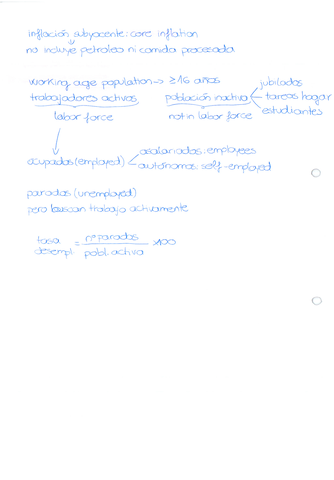 inflación subyacente: core inflation
no incluye petroleo ni comida procesada
working age population → ≥16 años
trabajadores activos
labor force
población inactiva
not in labor force
jubilados
tareas hogar
estudiantes
ocupados (employed)
asalariados: employees
autónomos: self-employed
parados (unemployed)
pero buscan trabajo activamente
tasa desempl. = nº parados / pobl. activa × 100